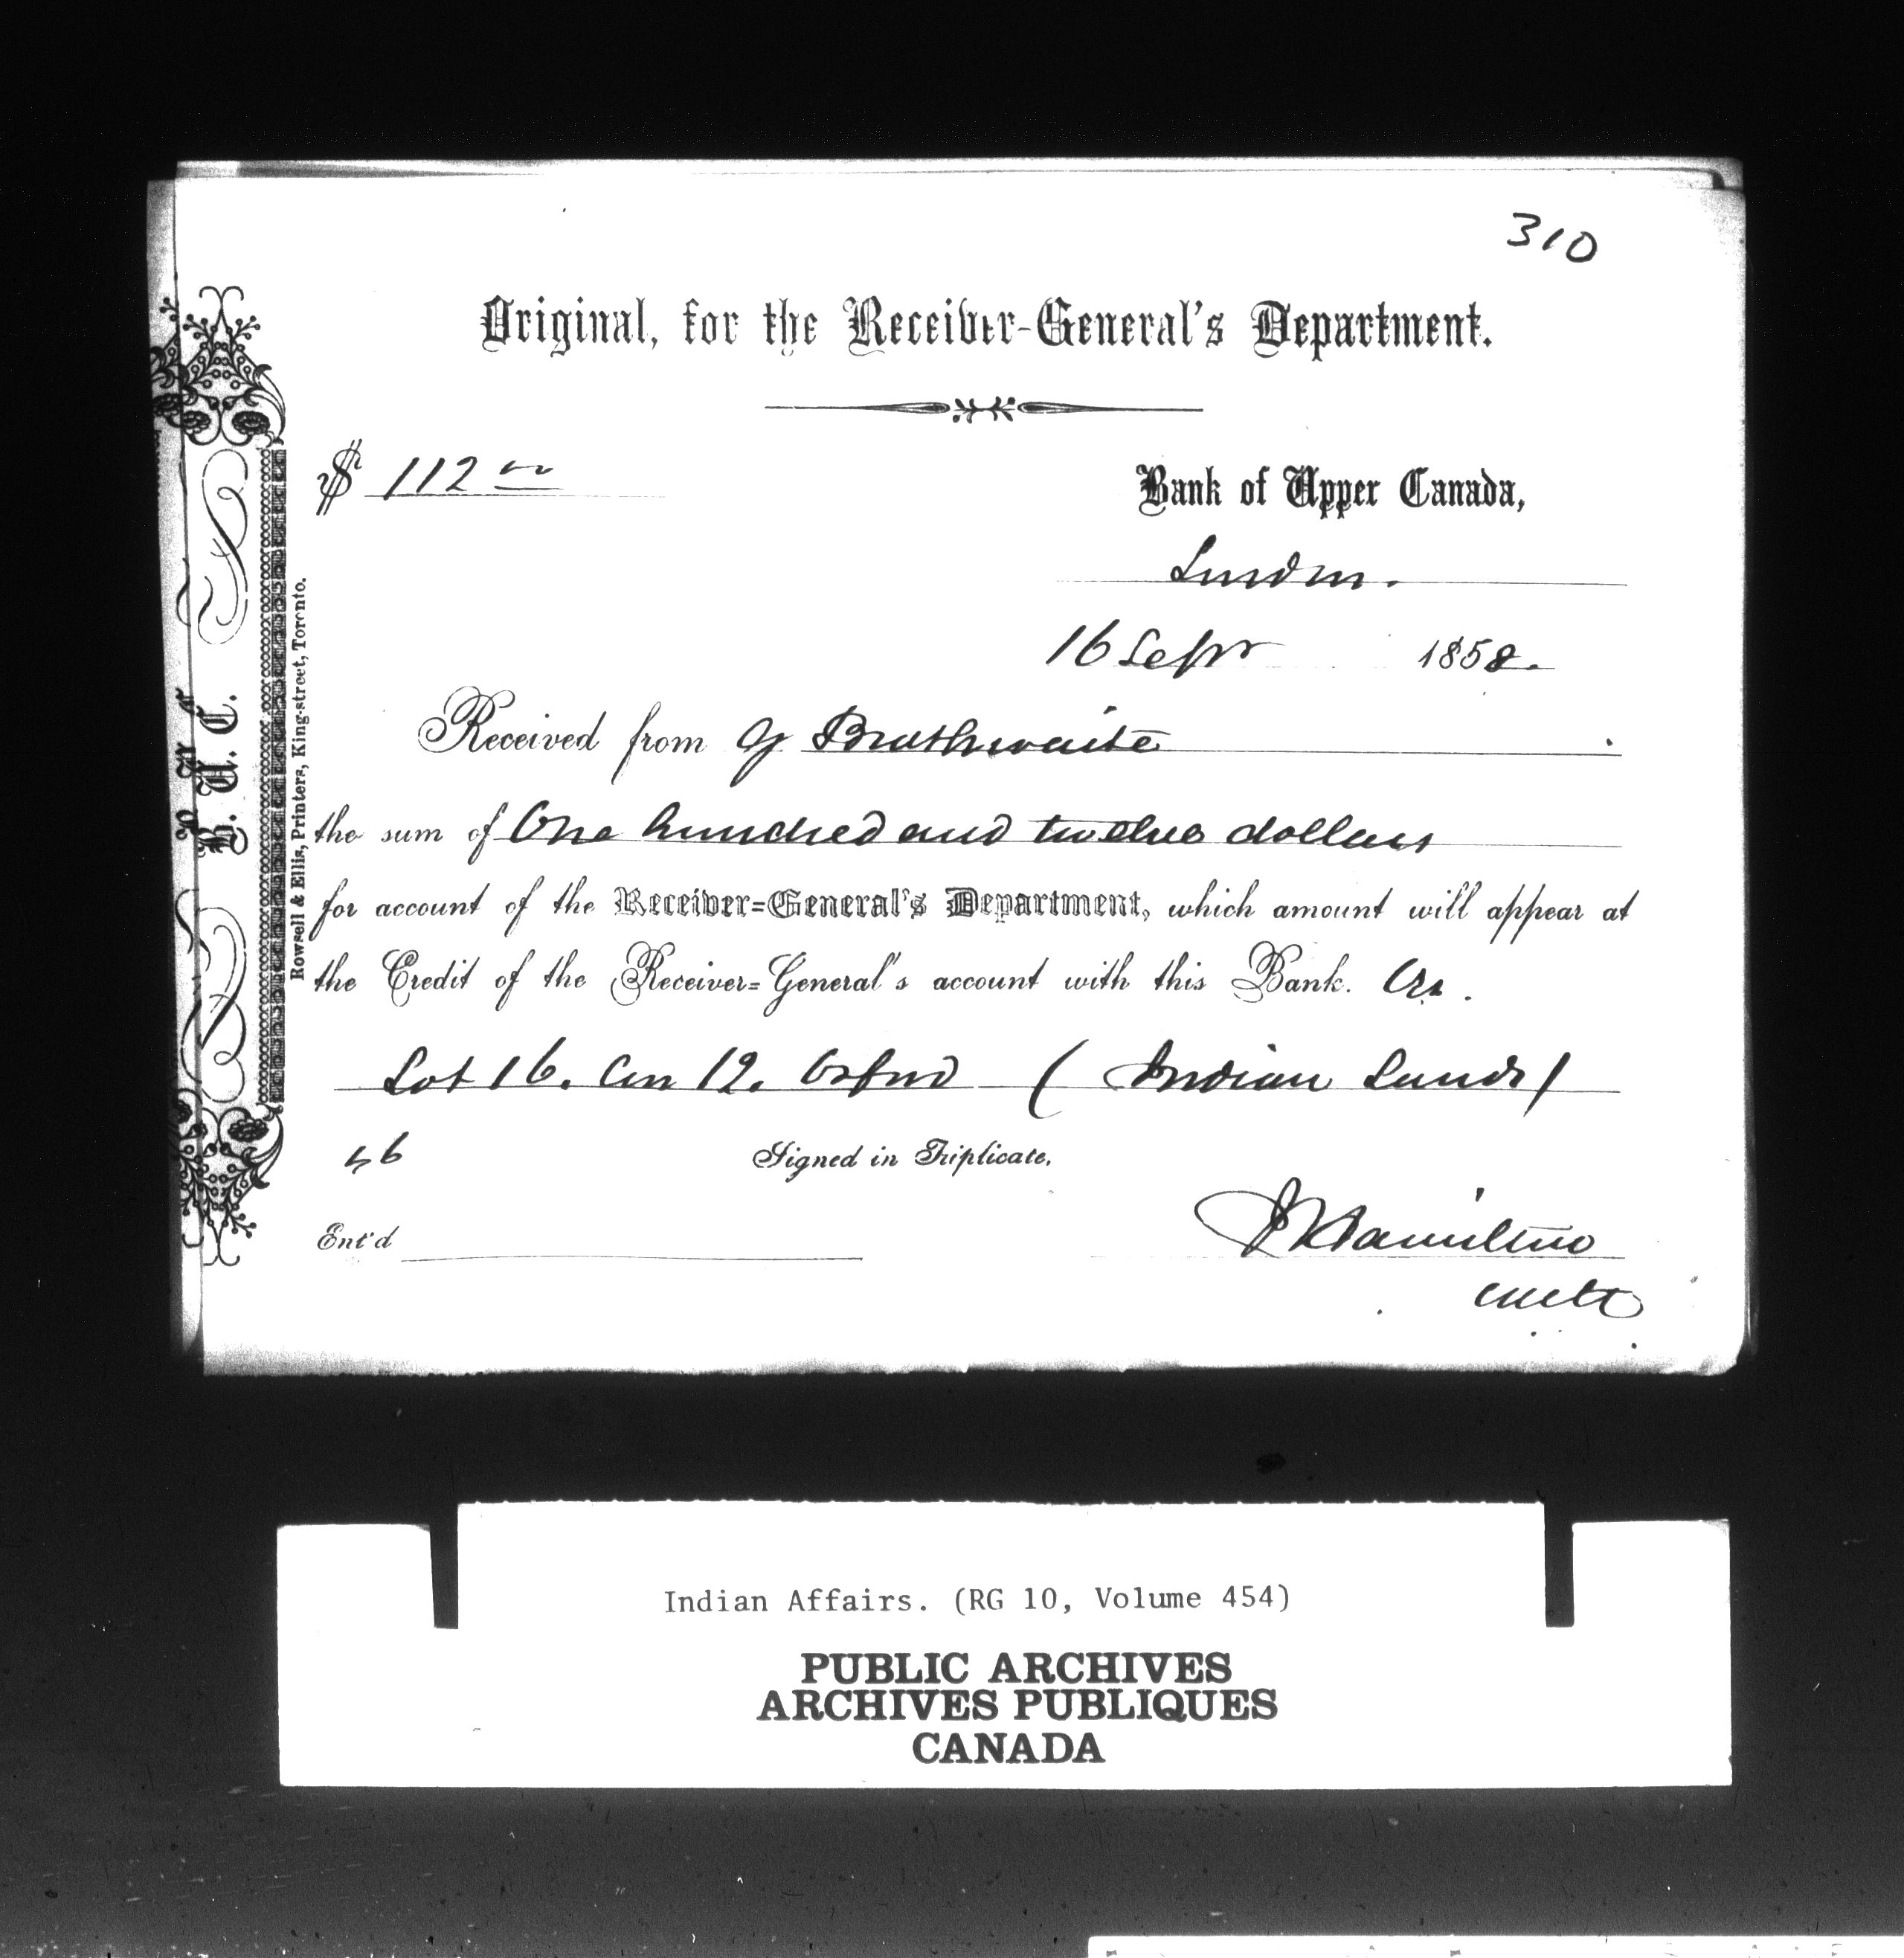 310
Original, for the Receiver-General's Department.
$ 112 00
Bank of Upper Canada,
London.
16 Sepr 1858.
Received from G Brathwaite
the sum of One hundred and twelve dollars
for account of the Receiver=General's Department, which amount will appear at
the Credit of the Receiver=General's account with this Bank.
Lot 16. Con 12. Oxford (Indian Lands)
Signed in Triplicate.
Ent'd
Hamilton
B. U. C.
Rowsell & Ellis, Printers, King-street, Toronto.
Indian Affairs. (RG 10, Volume 454)
PUBLIC ARCHIVES
ARCHIVES PUBLIQUES
CANADA